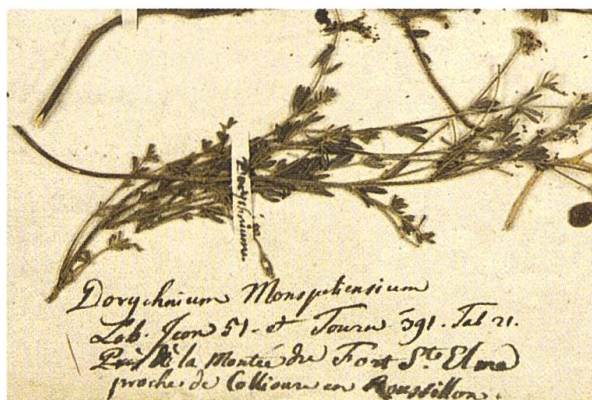 Dorychnium
Dorychnium Monspeliensium
Lob. Icon 51. et Tourn 391. Tab 21.
Près de la Montée du Fort St.e Elme
proche de Collioure en Roussillon.